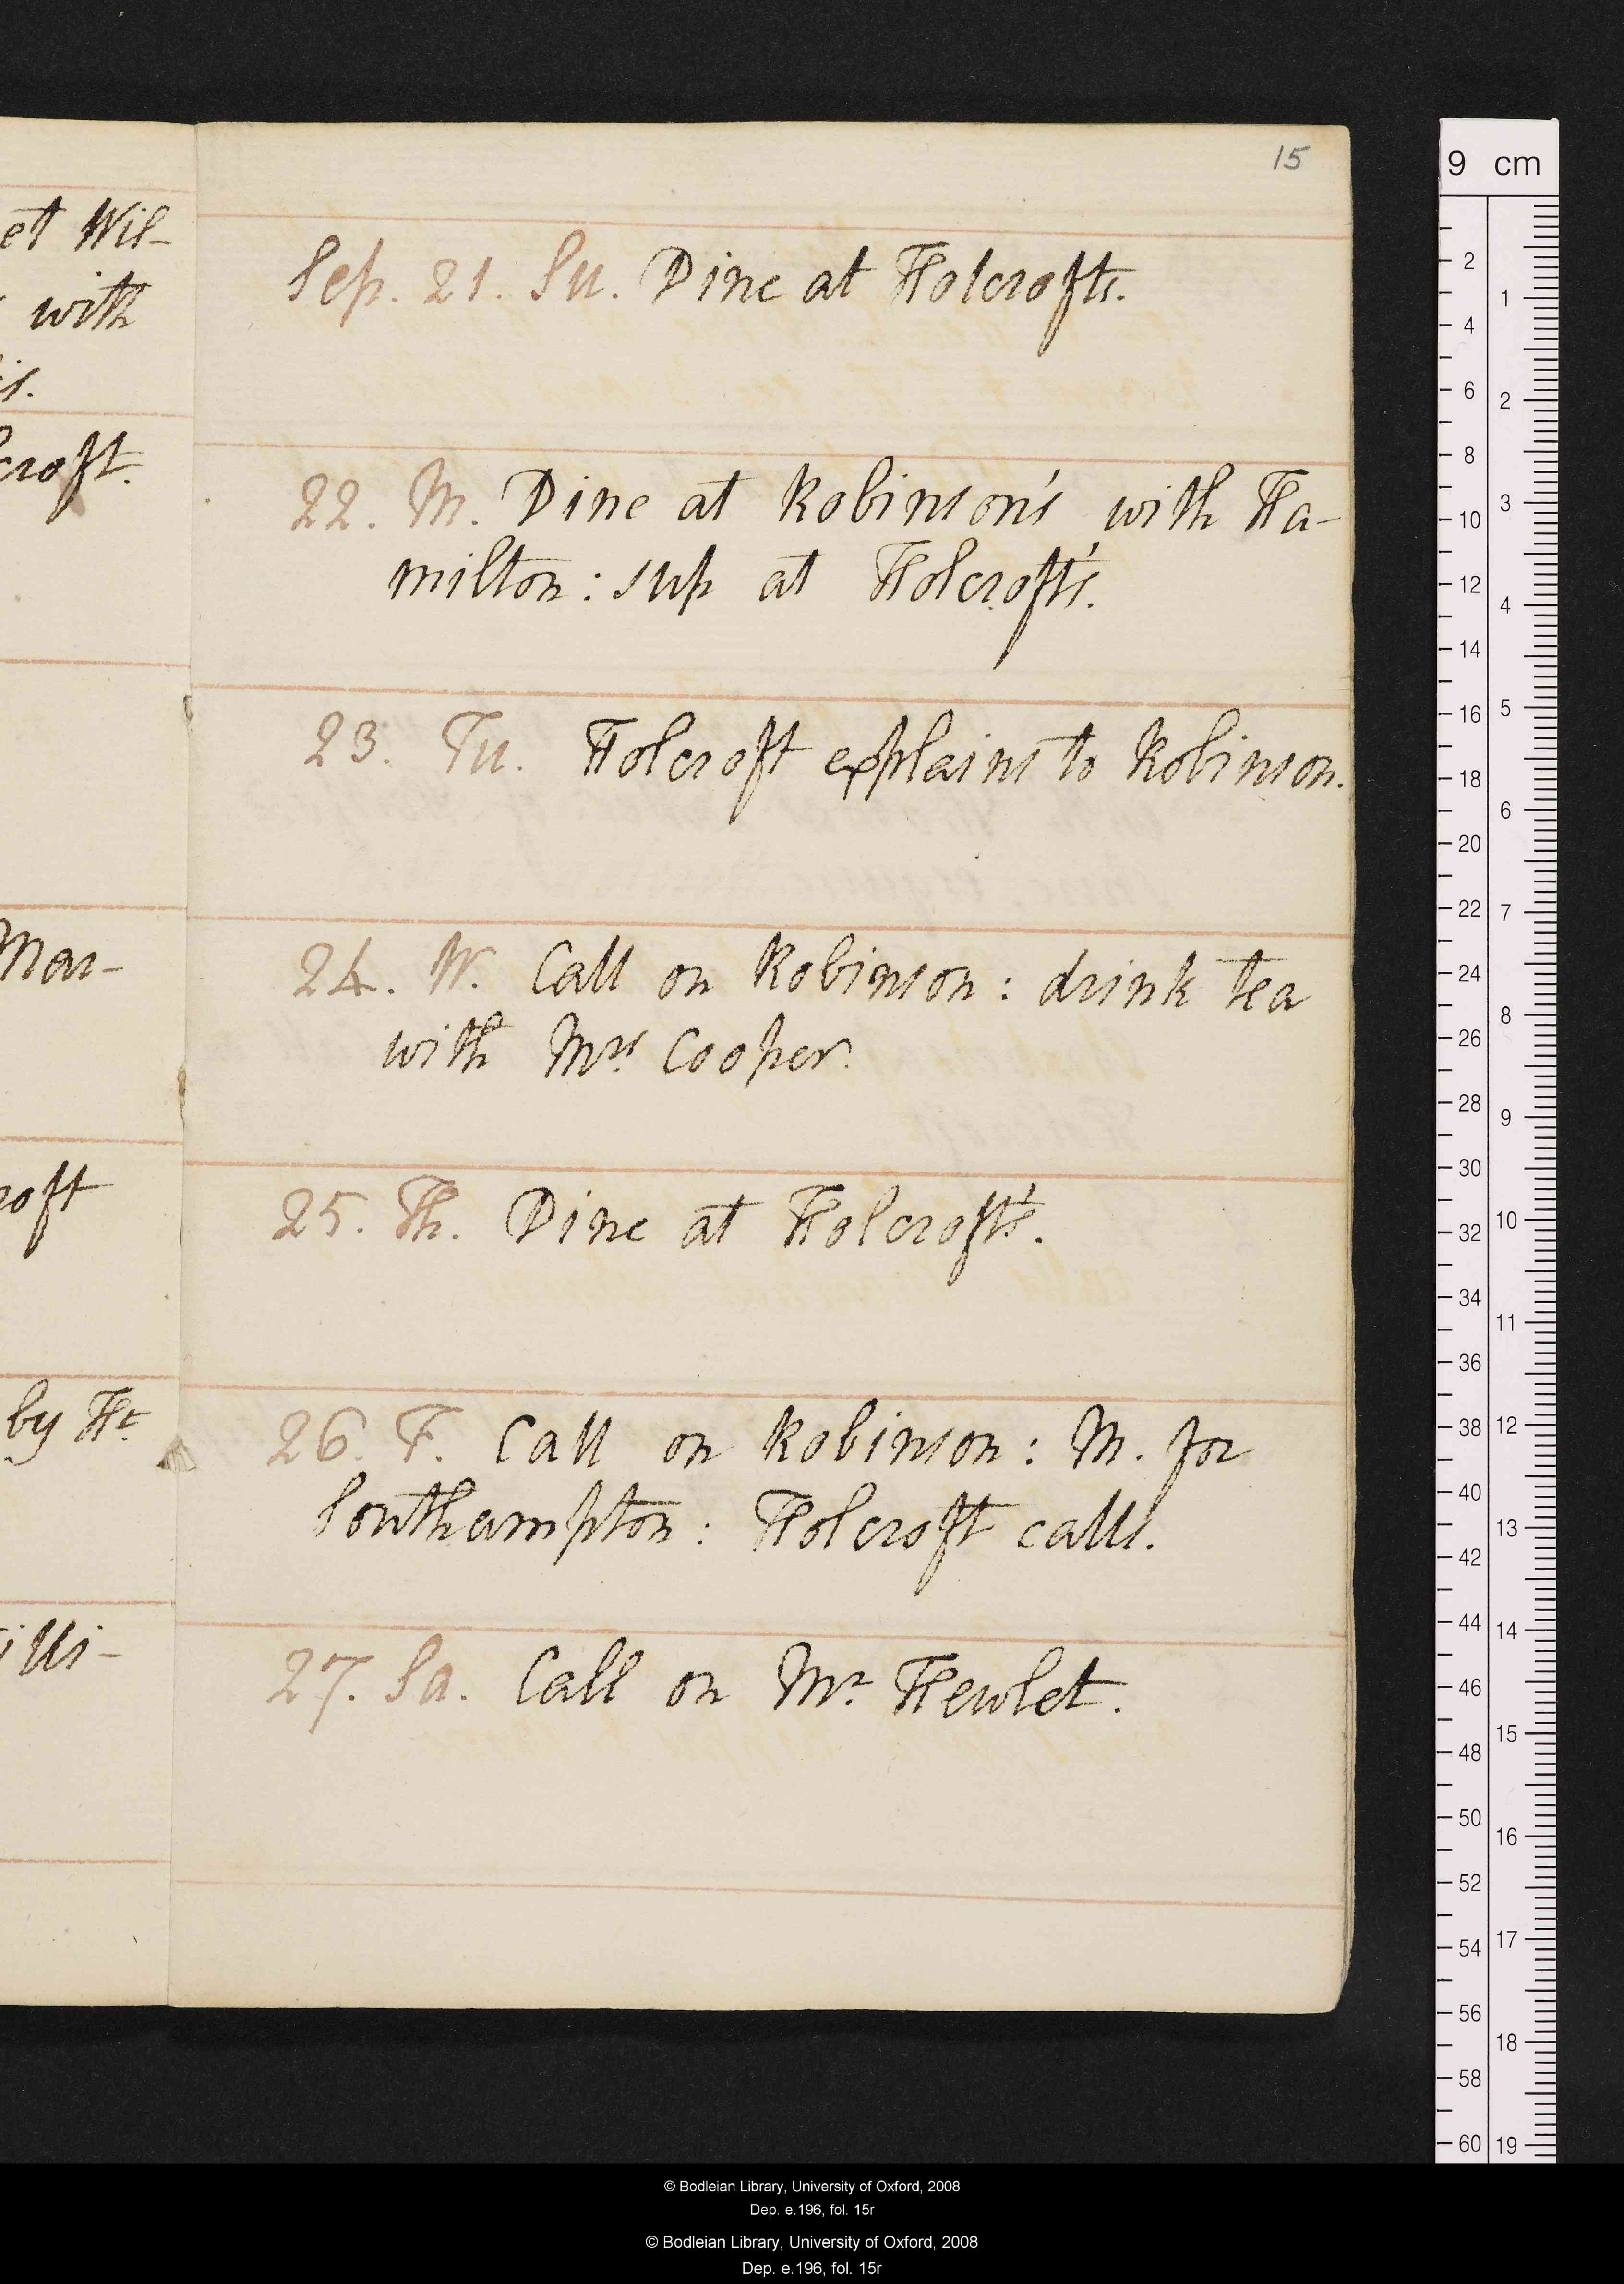 et Wil-
with
is.
croft.
Mar-
roft
by Ht.
illi-
15
Sep. 21. Su. Dine at Holcrofts.
22. M. Dine at Robinson's with Ha-
milton: sup at Holcroft's.
23. Tu. Holcroft explains to Robinson.
24. W. Call on Robinson: drink tea
with Mrs. Cooper.
25. Th. Dine at Holcroft's.
26. F. Call on Robinson: M. for
Southampton: Holcroft calls.
27. Sa. Call on Mr. Hewlet.
9 cm
2
4
6
8
10
12
14
16
18
20
22
24
26
28
30
32
34
36
38
40
42
44
46
48
50
52
54
56
58
60
1
2
3
4
5
6
7
8
9
10
11
12
13
14
15
16
17
18
19
© Bodleian Library, University of Oxford, 2008
Dep. e.196, fol. 15r
© Bodleian Library, University of Oxford, 2008
Dep. e.196, fol. 15r